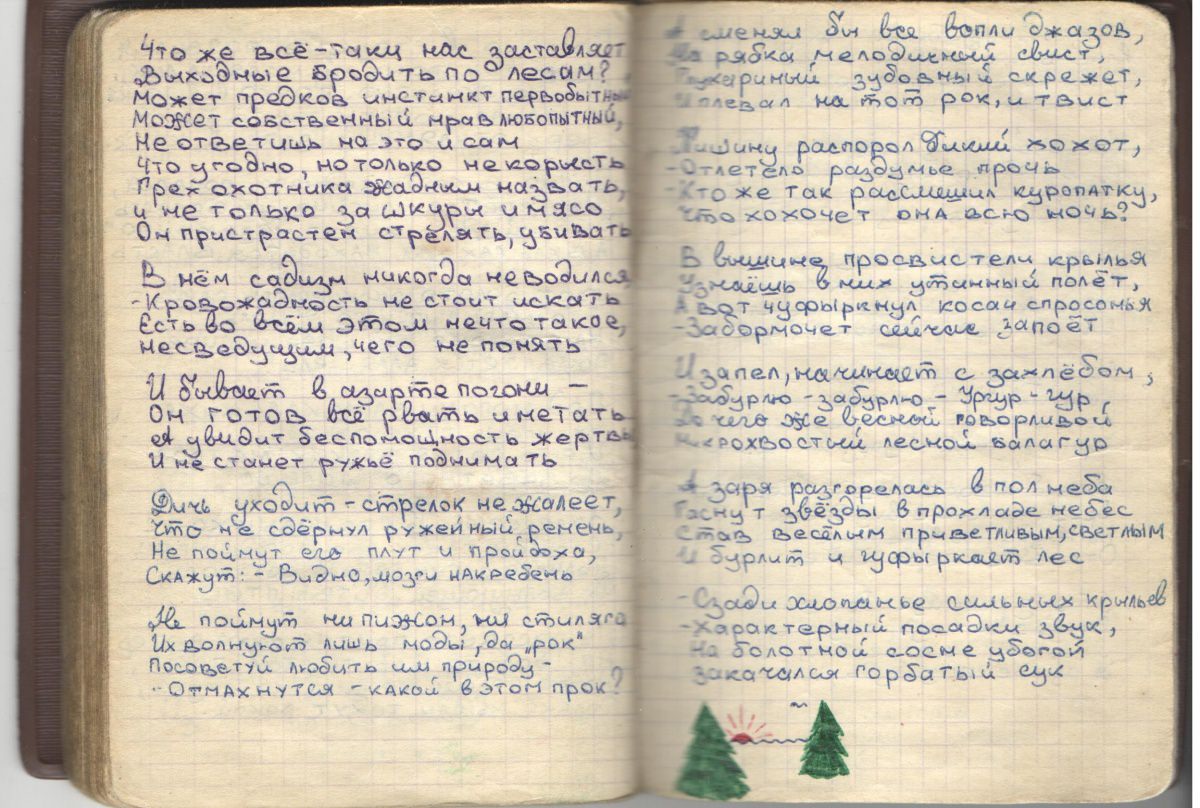 Что же всё-таки нас заставляет
Выходные бродить по лесам?
Может предков инстинкт первобытный
Может собственный нрав любопытный,
Не ответишь на это и сам
Что угодно, но только не корысть
Грех охотника жадным назвать,
и не только за шкуры и мясо
Он пристрастен стрелять, убивать
В нём садизм никогда не водился
-Кровожадность не стоит искать
Есть во всём этом нечто такое,
несведущим, чего не понять
И бывает в азарте погони –
Он готов всё рвать и метать
А увидит беспомощность жертвы
И не станет ружьё поднимать
Дичь уходит – стрелок не жалеет,
Что не сдёрнул ружейный ремень,
Не поймут его плут и пройдоха,
Скажут: - Видно, мозги накребень
Не поймут ни пижон, ни стиляга
Их волнуют лишь моды, да „рок"
Посоветуй любить им природу –
-Отмахнутся – какой в этом прок?
Я сменял бы все вопли джазов,
На рябка мелодичный свист,
Глухариный зубовный скрежет,
И плевал на тот рок, и твист
Тишину распорол дикий хохот,
-Отлетело раздумье прочь
-Кто же так рассмешил куропатку,
Что хохочет она всю ночь?
В вышине просвистели крылья
Узнаёшь в них утиный полёт,
А вот чуфыркнул косач спросонья
-Забормочет сейчас запоёт
И запел, начинает с захлёбом,
-Забурлю-забурлю – Ургур-гур,
До чего же весной говорливой
чернохвостый лесной балагур
А заря разгорелась в пол неба
Гаснут звёзды в прохладе небес
Став весёлым приветливым, светлым
И бурлит и чуфыркает лес
-Сзади хлопанье сильных крыльев
-Характерный посадки звук,
На болотной сосне убогой
закачался горбатый сук